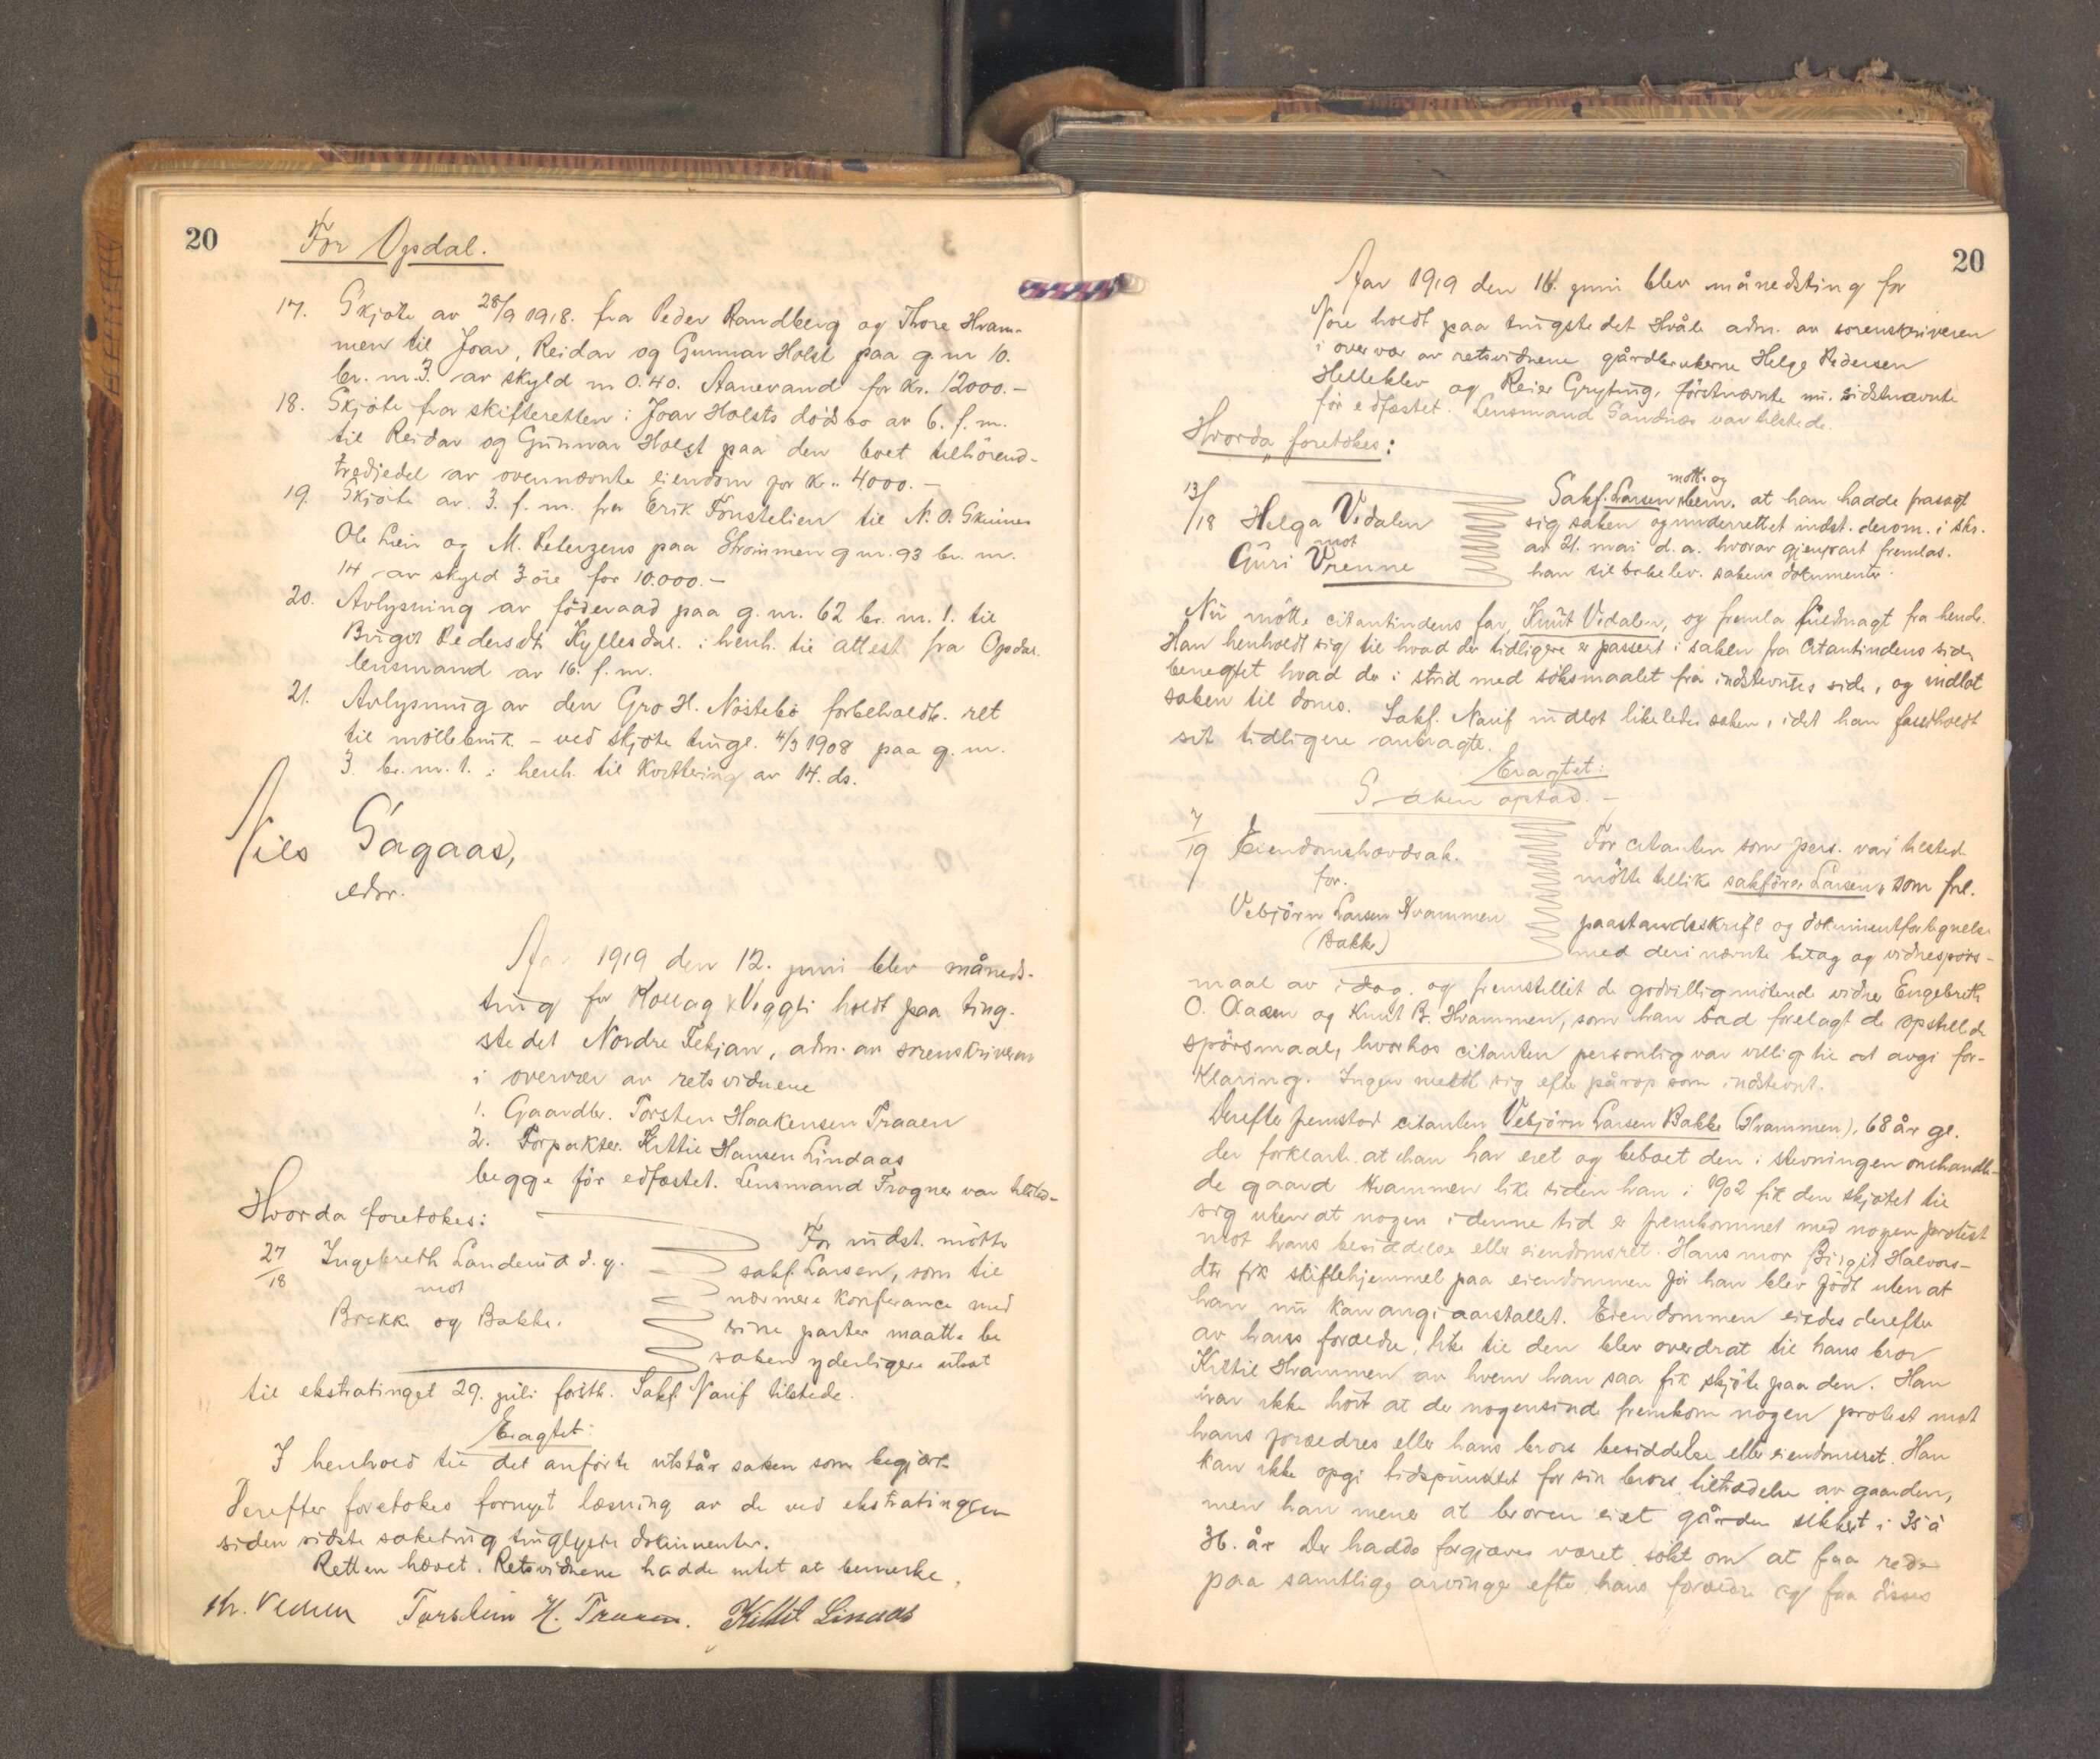 20
For Opsdal.
17. Skjøte av 28/9 1918. fra Peder Randberg og Thore Hvam-
men til Joar, Reidar og Gunnar Holst paa g. nr 10.
br. nr. 3. av skyld m 0.40. Aanevand for kr. 12000.-
18. Skjøte fra skifteretten i Joar Holsts dödsbo av 6. f. m.
til Reidar og Gunnar Holst paa den boet tilhörend-
tredjedel av ovennævnte eiendom for kr. 4000.-
19. Skjöte av 3. f. m. fra Erik Fönstelien til N. O. Skinnes
Ole Lien og M. Peterzens paa Strömmen g nr. 93 br. nr.
14 av skyld 3 öre for 10.000.-
20. Avlysning av föderaad paa g. nr. 62 br. nr. 1. til
Birgit Pedersdtr Kyllesdal. i henh. til attest fra Opdal
lensmand av 16. f. m.
21. Avlysning av den Gro H. Nöstebö forbeholdte. ret
til möllebruk. - ved skjöte tingl. 4/3 1908 paa g. nr.
3. br. nr. 1. i henh. til kvittering av 14. ds.
Nils Sagaas,
edsv.
Aar 1919 den 12. juni blev måneds-
ting for Rollag & Veggli holdt paa ting-
stedet Nordre Fekjan, adm. av sorenskriveren
i overvær av retsvidnene
1. Gaardbr. Torsten Haakensen Traaen
2. Forpakter. Kittil Hansen Lindaas
begge för edfæstet. Lensmand Frogner var tilsted-
Hvorda foretokes:
27/18 Ingebreth Landerud d. y.
mot
Brekke og Bakke.
For indst. mötte
sakf. Larsen, som til
nærmere konferance med
sine parter maatte be
saken yderligere utsat
til ekstratinget 29. juli förstk. Sakf. Narif tilstede.
Eragtet:
I henhold til det anförte utstår saken som begjært.
Derefter foretokes fornyet læsning av de ved ekstratingen
siden sidste saketing tinglyste dokumenter.
Retten hævet. Retsvidnene hadde intet at bemerke.
Torstein H. Traaen. Kittil Lindaas
20
Aar 1919 den 16. juni blev månedsting for
Nore holdt paa tingstedet Hvåle adm. av sorenskriveren
i overvær av retsvidnene gårdbrukerne Helge Pedersen
Helleklev og Reier Gryting, förstnævnte nu. sidstnævnte
för edfæstet. Lensmand Sandnæs var tilstede.
Hvorda foretokes:
13/18 Helga Vidalen
mot
Guri Vrenne
mött. og
Sakf. Larsen bem. at han hadde frasagt
sig saken og underrettet indst. derom. i skr.
av 21. mai d. a. hvorav gjenpart fremlas.
han tilbakelev. sakens dokumenter.
Nu mötte citantindens far, Knut Vidalen, og fremla fuldmagt fra hende.
Han henholdt sig til hvad der tidligere er passert i saken fra citantindens side
benegtet hvad der i strid med söksmaalet fra indstevntes side, og indlot
saken til doms. Sakf. Narif indlot likeledes saken, idet han fastholdt
sit tidligere anbragte.
Eragtet:
Saken optad. -
7/19 Eiendomshævdsak.
for.
Vebjörn Larsen Hvammen
(Bakke)
For citanten som pers. var tilsted-
mötte tillike sakförer Larsen, som frl.
paastandsskrift og dokumentfortegnelse
med deri nævnte bilag og vidnespörs-
maal av idag. og fremstillet de godvillig mötende vidner Engebreth
O. Aasen og Knut B. Hvammen, som han bad forelagt de opstillede
spörsmaal, hvorhos citanten personlig var villig til at avgi for-
klaring. Ingen meldte sig efter påråp som indstevnt.
Derefter fremstod citanten Vebjörn Larsen Bakke (Hvammen), 68 år gl.
der forklarte. at han har eiet og beboet den i stevningen omhandle-
de gaard Hvammen like siden han i 1902 fik den skjötet til
sig uten at nogen i denne tid er fremkommet med nogen protest
mot hans besiddelse eller eiendomsret. Hans mor Birgit Halvors-
dtr fik skiftehjemmel paa eiendommen för han blev födt uten at
han nu kan angi aarstallet. Eiendommen eiedes derefter
av hans forældre, like til den blev overdrat til hans bror
Kittil Hvammen av hvem han saa fik skjöte paa den. Han
har ikke hört at der nogensinde fremkom nogen protest mot
hans forældres eller hans brors besiddelse eller eiendomsret. Han
kan ikke opgi tidspunktet for sin brors tiltrædelse av gaarden,
men han mener at broren eiet gården sikkert i 35 à
36. år Der hadde forgjæves været sökt om at faa rede
paa samtlige arvinger efter hans forældre og faa disses